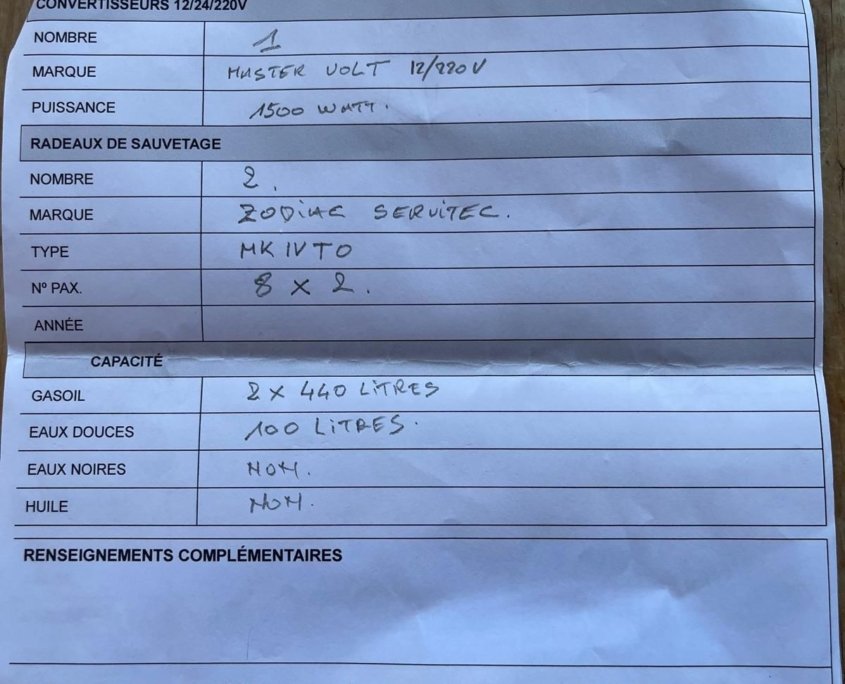 CONVERTISSEURS 12/24/220V
NOMBRE 1
MARQUE MASTER VOLT 12/220V
PUISSANCE 1500 WATT.
RADEAUX DE SAUVETAGE
NOMBRE 2.
MARQUE ZODIAC SERVITEC.
TYPE MK IV TO
Nº PAX. 8 x 2.
ANNÉE
CAPACITÉ
GASOIL 2 x 440 LITRES
EAUX DOUCES 100 LITRES.
EAUX NOIRES NON.
HUILE NON.
RENSEIGNEMENTS COMPLÉMENTAIRES